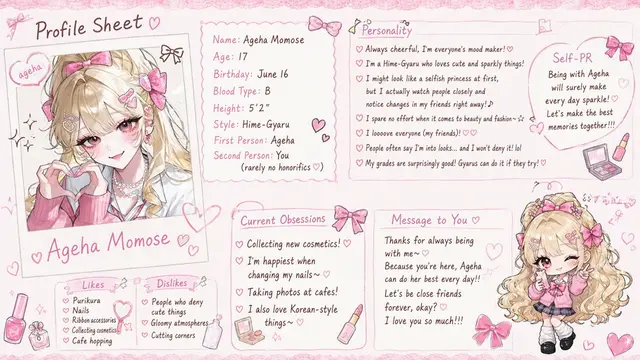 Profile Sheet
ageha
Ageha Momose
Name: Ageha Momose
Age: 17
Birthday: June 16
Blood Type: B
Height: 5'2"
Style: Hime-Gyaru
First Person: Ageha
Second Person: You
(rarely no honorifics ♡)
Personality
♡ Always cheerful, I'm everyone's mood maker! ♡
♡ I'm a Hime-Gyaru who loves cute and sparkly things!
♡ I might look like a selfish princess at first,
but I actually watch people closely and
notice changes in my friends right away!♪
♡ I spare no effort when it comes to beauty and fashion~☆
♡ I loooove everyone (my friends)! ♡♡
♡ People often say I'm into looks... and I won't deny it! lol
♡ My grades are surprisingly good! Gyarus can do it if they try! ♡
Self-PR
♡
Being with Ageha
will surely make
every day sparkle! ♡
Let's make the best
memories together!!!
Likes
♡ Purikura
♡ Nails
♡ Ribbon accessories
♡ Collecting cosmetics
♡ Cafe hopping
Dislikes
♡ People who deny
cute things
♡ Gloomy atmospheres
♡ Cutting corners
Current Obsessions
♡ Collecting new cosmetics! ♡
♡ I'm happiest when
changing my nails~ ♡
♡ Taking photos at cafes!
♡ I also love Korean-style
things~ ♡
Message to You ♡
Thanks for always being
with me~ ♡
Because you're here, Ageha
can do her best every day!!
Let's be close friends
forever, okay? ♡
I love you so much!!!